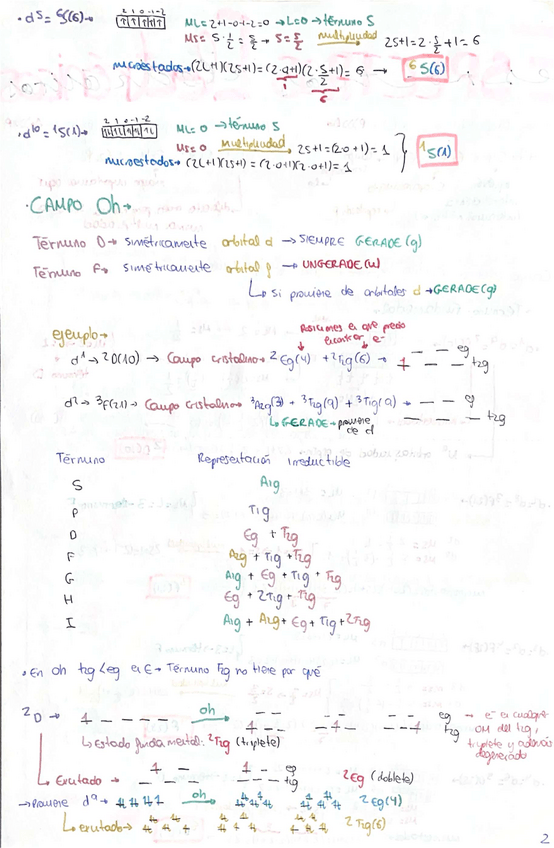 · d⁵ = ⁶S(6) → 2 1 0 -1 -2 ML = 2+1-0-1-2=0 → L=0 → término S
MS = 5·1/2 = 5/2 → S = 5/2 multiplicidad 2S+1 = 2·5/2+1 = 6
microestados → (2L+1)(2S+1) = (2·0+1)(2·5/2+1) = 6 → ⁶S(6)
1 6
· d¹⁰ = ¹S(1) → 2 1 0 -1 -2 ML = 0 → término S
MS = 0 Multiplicidad 2S+1 = (2·0+1) = 1 ¹S(1)
microestados → (2L+1)(2S+1) = (2·0+1)(2·0+1) = 1
· CAMPO Oh →
Término D → simétricamente orbital d → SIEMPRE GERADE (g)
Término F → simétricamente orbital f → UNGERADE (u)
↳ Si proviene de orbitales d → GERADE (g)
ejemplo →
Posiciones en que puedo encontrar e⁻
d¹ → ²D(10) → Campo cristalino → ²Eg(4) + ²T2g(6) → eg t2g
d² → ³F(21) → Campo cristalino → ³A2g(3) + ³T1g(9) + ³T2g(9) → eg t2g
↳ GERADE → proviene de d
Término Representación irreductible
S A1g
P T1g
D Eg + T2g
F A2g + T1g + T2g
G A1g + Eg + T1g + T2g
H Eg + 2T1g + T2g
I A1g + A2g + Eg + T1g + 2T2g
· En oh t2g < eg en E → Término T2g no tiene por qué
²D → oh eg t2g → e⁻ en cualquier OM del t2g, triplete y además degenerado
↳ Estado fundamental: ²T2g (triplete)
↳ Excitado → eg t2g ²Eg (doblete)
→ Proviene d⁹ → oh ²Eg(4)
↳ excitado → ²T2g(6)
2